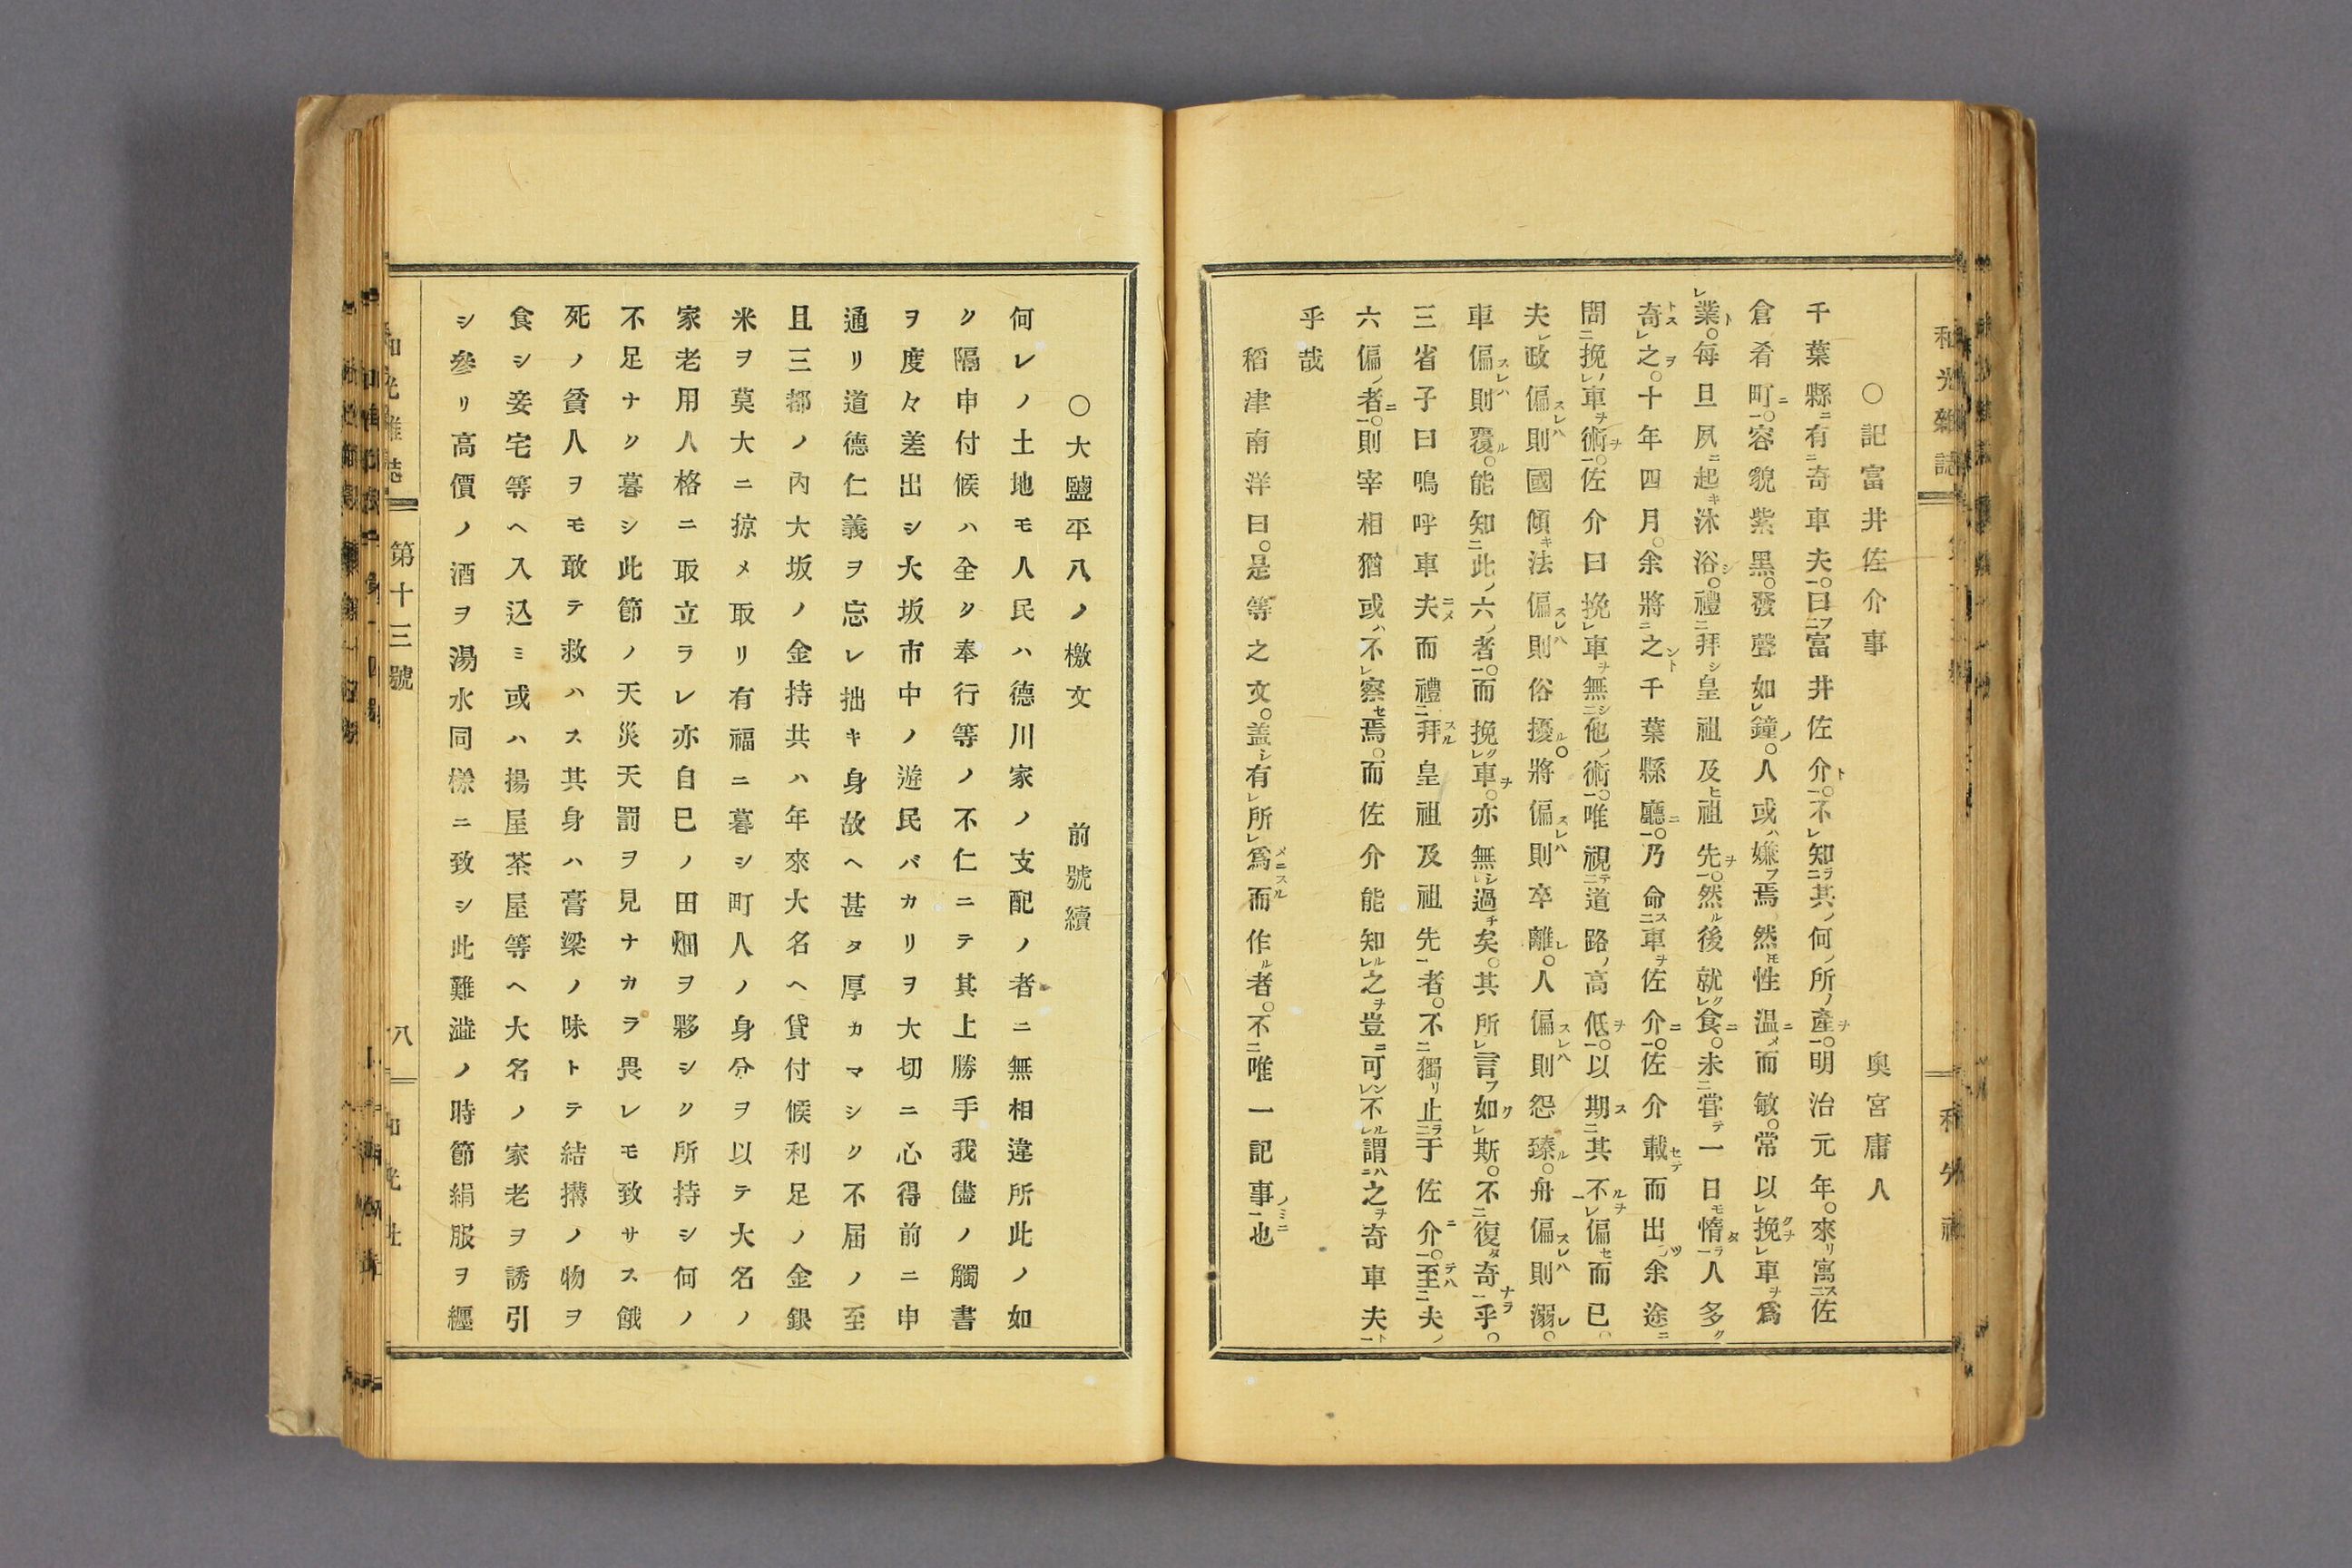 ○記富井佐介事　奥宮庸人
千葉縣ニ有ニ奇車夫一。曰ニフ富井佐介ト一。不レ知ラニ其ノ何ノ所ノ產ヲ一。明治元年。來リ寓スニ佐
倉肴町ニ一。容貌紫黑。發聲如レ鐘ノ。人或ハ嫌フ焉然トモ性温ニメ而敏。常以レ挽クヲレ車ヲ爲
レ業ト。每旦夙ニ起キ沐浴シ。禮ニ拜シ皇祖及ヒ祖先ヲ一。然ル後就クレ食ニ。未ニ甞テ一日モ惰タラ一人多ク
奇トスレ之ヲ。十年四月。余將ニ之ントニ千葉縣廳ニ一。乃命スニ車ヲ佐介ニ一。佐介載セテ而出ツ余途ニ
問ニ挽ノレ車ヲ術ヲ一。佐介曰挽レ車ヲ無シニ他ノ術一。唯視テニ道路ノ高低ヲ一。以期スニ其不ルヲレ偏セ而已。
夫レ政偏スレハ則國傾キ法偏スレハ則俗擾ル。將偏スレハ則卒離レ。人偏スレハ則怨臻ル。舟偏スレハ則溺レ。
車偏スレハ則覆ル。能知ニ此ノ六ノ者一。而挽クレ車ヲ。亦無シレ過チ矣。其所レ言フ如クレ斯。不ニ復タ奇ナラ一乎。
三省子曰嗚呼車夫ニメ而禮ニ拜スル皇祖及祖先一者。不ニ獨リ止ラニ于佐介ニ一。至テハニ夫ノ
六偏ノ者ニ一。則宰相猶或ハ不レ察セ焉。而佐介能知ルレ之ヲ豈ニ可ンレ不ルレ謂ハニ之ヲ奇車夫ト一
乎哉
稻津南洋曰。是等之文。蓋シ有レ所レ爲メニスル而作ル者。不ニ唯一記事ノミニ一也
○大鹽平八ノ檄文　前號續
何レノ土地モ人民ハ德川家ノ支配ノ者ニ無相違所此ノ如
ク隔申付候ハ全ク奉行等ノ不仁ニテ其上勝手我儘ノ觸書
ヲ度々差出シ大坂市中ノ遊民バカリヲ大切ニ心得前ニ申
通リ道德仁義ヲ忘レ拙キ身故ヘ甚タ厚カマシク不届ノ至
且三都ノ內大坂ノ金持共ハ年來大名ヘ貸付候利足ノ金銀
米ヲ莫大ニ掠メ取リ有福ニ暮シ町人ノ身分ヲ以テ大名ノ
家老用人格ニ取立ラレ亦自巳ノ田畑ヲ夥シク所持シ何ノ
不足ナク暮シ此節ノ天災天罰ヲ見ナカラ畏レモ致サス餓
死ノ貧人ヲモ敢テ救ハス其身ハ膏梁ノ味トテ結搆ノ物ヲ
食シ妾宅等ヘ入込ミ或ハ揚屋茶屋等ヘ大名ノ家老ヲ誘引
シ參リ高價ノ酒ヲ湯水同樣ニ致シ此難澁ノ時節絹服ヲ纒
第十三號　八